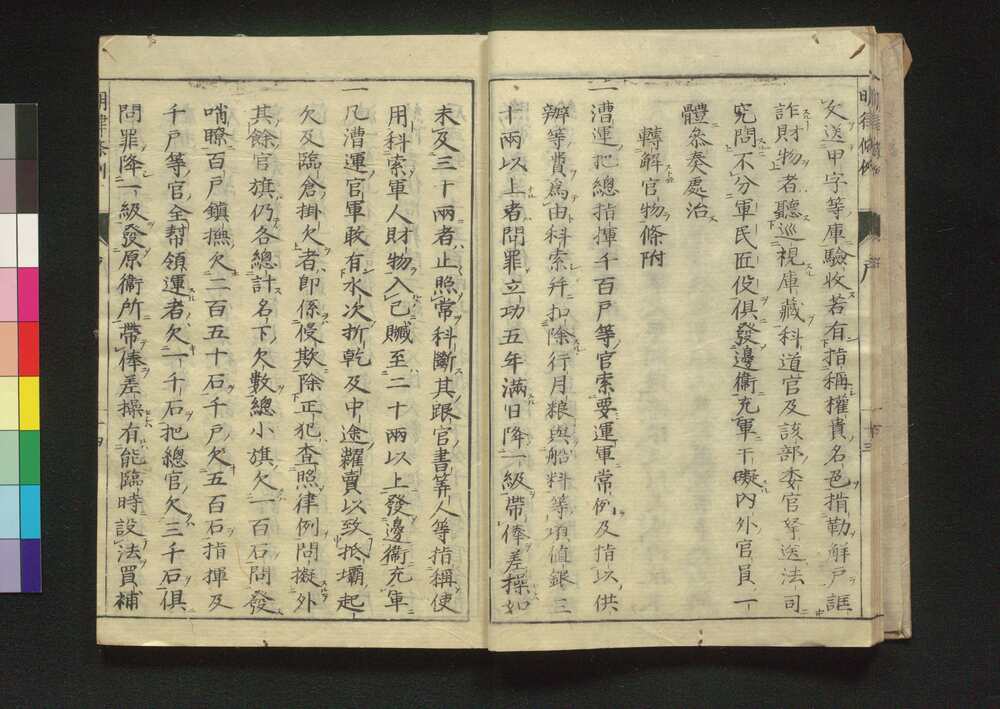 文送甲字等庫驗收若有指稱權貴名色揹勒解戸誆
詐財物者聽巡視庫藏科道官及該部委官拏送法司
究問不分軍民匠役俱發邊衞充軍干礙內外官員一
體叅奏處治
轉解官物條附
一漕運把總指揮千百戸等官索要運軍常例及指以供
辦等費爲由科索幷扣除行月粮與船料等項值銀三
十兩以上者問罪立功五年滿日降一級帶俸差操如
未及三十兩者止照常科斷其跟官書筭人等指稱使
用科索軍人財物入己贓至二十兩以上發邊衞充軍
一凡漕運官軍敢有水次折乾及中途糶賣以致抵壩起
欠及臨倉掛欠者卽係侵欺除正犯查照律例問擬外
其餘官旗仍各總計名下欠數總小旗欠一百石問發
哨瞭百戸鎮撫欠二百五十石千戸欠五百石指揮及
千戸等官全幫領運者欠一千石把總官欠三千石俱
問罪降一級發原衞所帶俸差操有能臨時設法買補